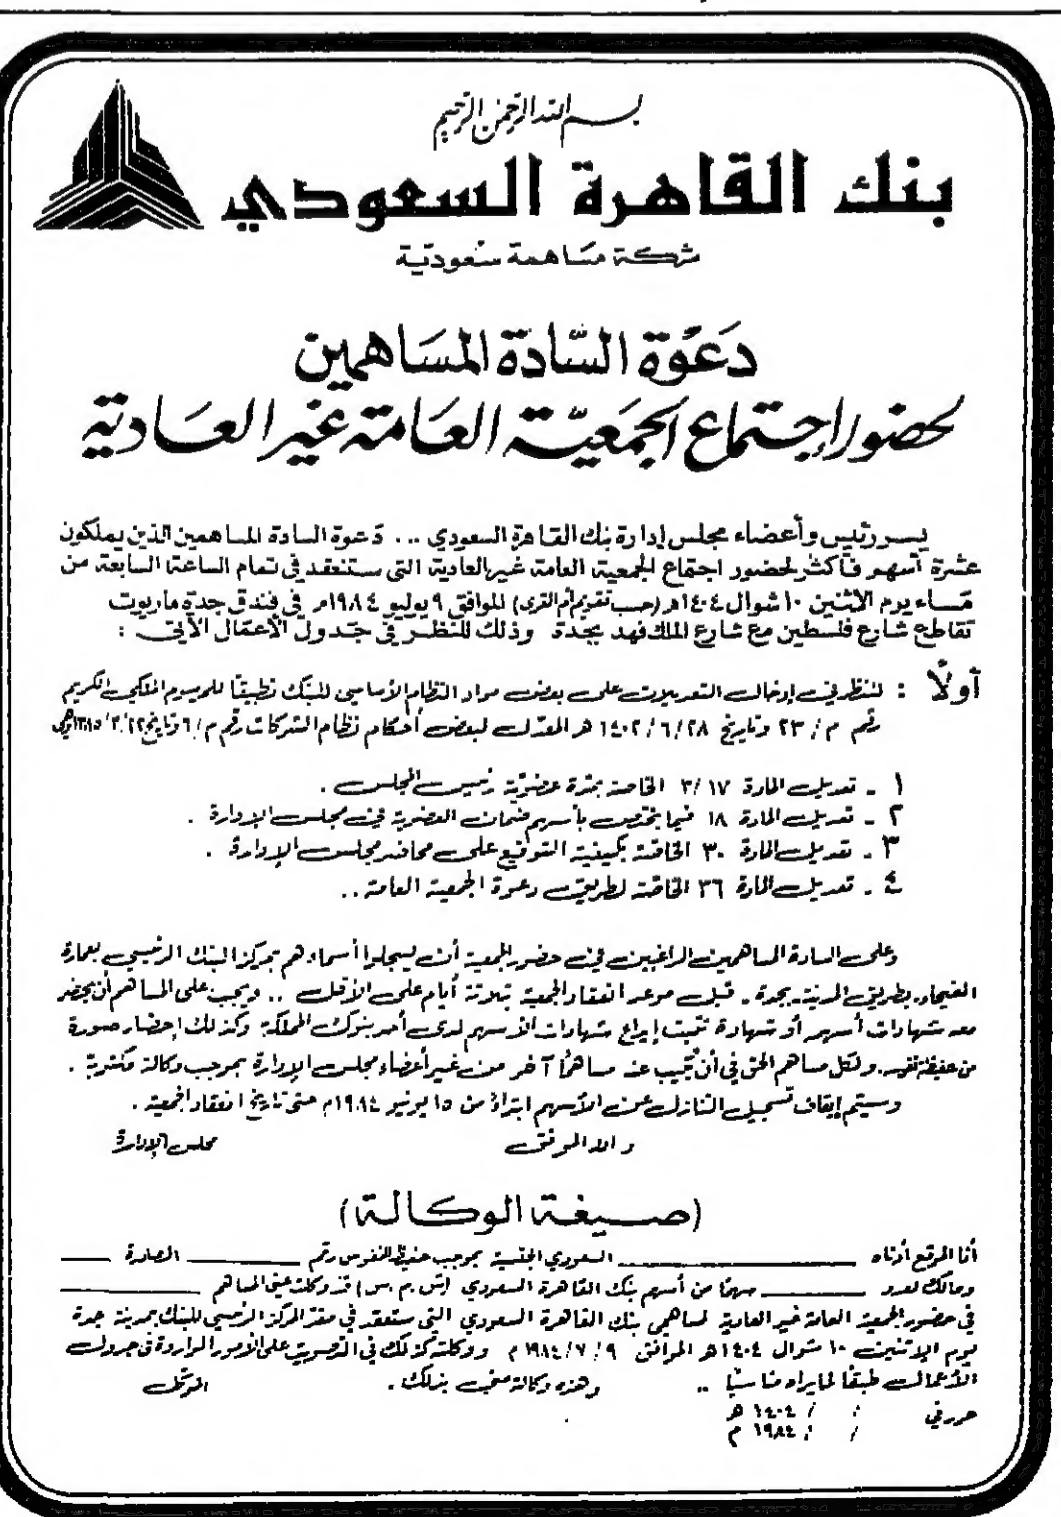 بسم الله الرحمن الرحيم
بنك القاهرة السعودي
شركة مساهمة سعودية
دعوة السادة المساهمين
لحضور إجتماع الجمعية العامة غير العادية
يسر رئيس وأعضاء مجلس إدارة بنك القاهرة السعودي ... دعوة السادة المساهمين الذين يملكون
عشرة أسهم فأكثر لحضور اجتماع الجمعية العامة غير العادية التي ستنعقد في تمام الساعة السابعة من
مساء يوم الاثنين ١٠ شوال ١٤٠٤هـ (حسب تقويم أم القرى) الموافق ٩ يوليو ١٩٨٤م في فندق جدة ماريوت
تقاطع شارع فلسطين مع شارع الملك فهد بجدة وذلك للنظر في جدول الأعمال الآتي :
أولاً : للنظر في إدخال التعديلات على بعض مواد النظام الأساسي للبنك تطبيقاً للمرسوم الملكي الكريم
رقم م / ٢٣ وتاريخ ١٤٠٢/٦/٢٨ هـ المعدل لبعض أحكام نظام الشركات رقم م/٦ وتاريخ ١٣٨٥/٣/٢٢هـ
١ - تعديل المادة ٣/١٧ الخاصة بمدة عضوية رئيس المجلس .
٢ - تعديل المادة ١٨ فيما يختص بأسهم ضمان العضوية في مجلس الإدارة .
٣ - تعديل المادة ٣٠ الخاصة بكيفية التوقيع على محاضر مجلس الإدارة .
٤ - تعديل المادة ٣٦ الخاصة لطريقة دعوة الجمعية العامة ..
وعلى السادة المساهمين الراغبين في حضور الجمعية أن يسجلوا أسماءهم بمركز البنك الرئيسي بعمارة
بطريق المدينة - بجدة - قبل موعد انعقاد الجمعية بثلاثة أيام على الأقل .. ويجب على المساهم أن يحضر
معه شهادات أسهم أو شهادة تثبت إيداع شهادات الأسهم لدى أحد بنوك المملكة وكذلك إحضار صورة
من حفيظة نفسه . ولكل مساهم الحق في أن يُنيب عنه مساهماً آخر من غير أعضاء مجلس الإدارة بموجب وكالة مكتوبة .
وسيتم إيقاف تسجيل التنازل عن الأسهم ابتداءً من ١٥ يونيو ١٩٨٤م حتى تاريخ انعقاد الجمعية .
والله الموفق مجلس الإدارة
(صيغة الوكالة)
أنا الموقع أدناه السعودي الجنسية بموجب حفيظة النفوس رقم الصادرة
ومالك لعدد سهماً من أسهم بنك القاهرة السعودي (ش.م.س) قد وكلت عني المساهم
في حضور الجمعية العامة غير العادية لمساهمي بنك القاهرة السعودي التي ستعقد في مقر المركز الرئيسي للبنك بمدينة جدة
يوم الإثنين ١٠ شوال ١٤٠٤هـ الموافق ١٩٨٤/٧/٩ م ووكلته كذلك في التصويت على الأمور الواردة في جدول
الأعمال طبقاً لما يراه مناسباً .. وهذه وكالة مني بذلك . الموكل
حرر في / / ١٤٠٤ هـ
/ / ١٩٨٤ م